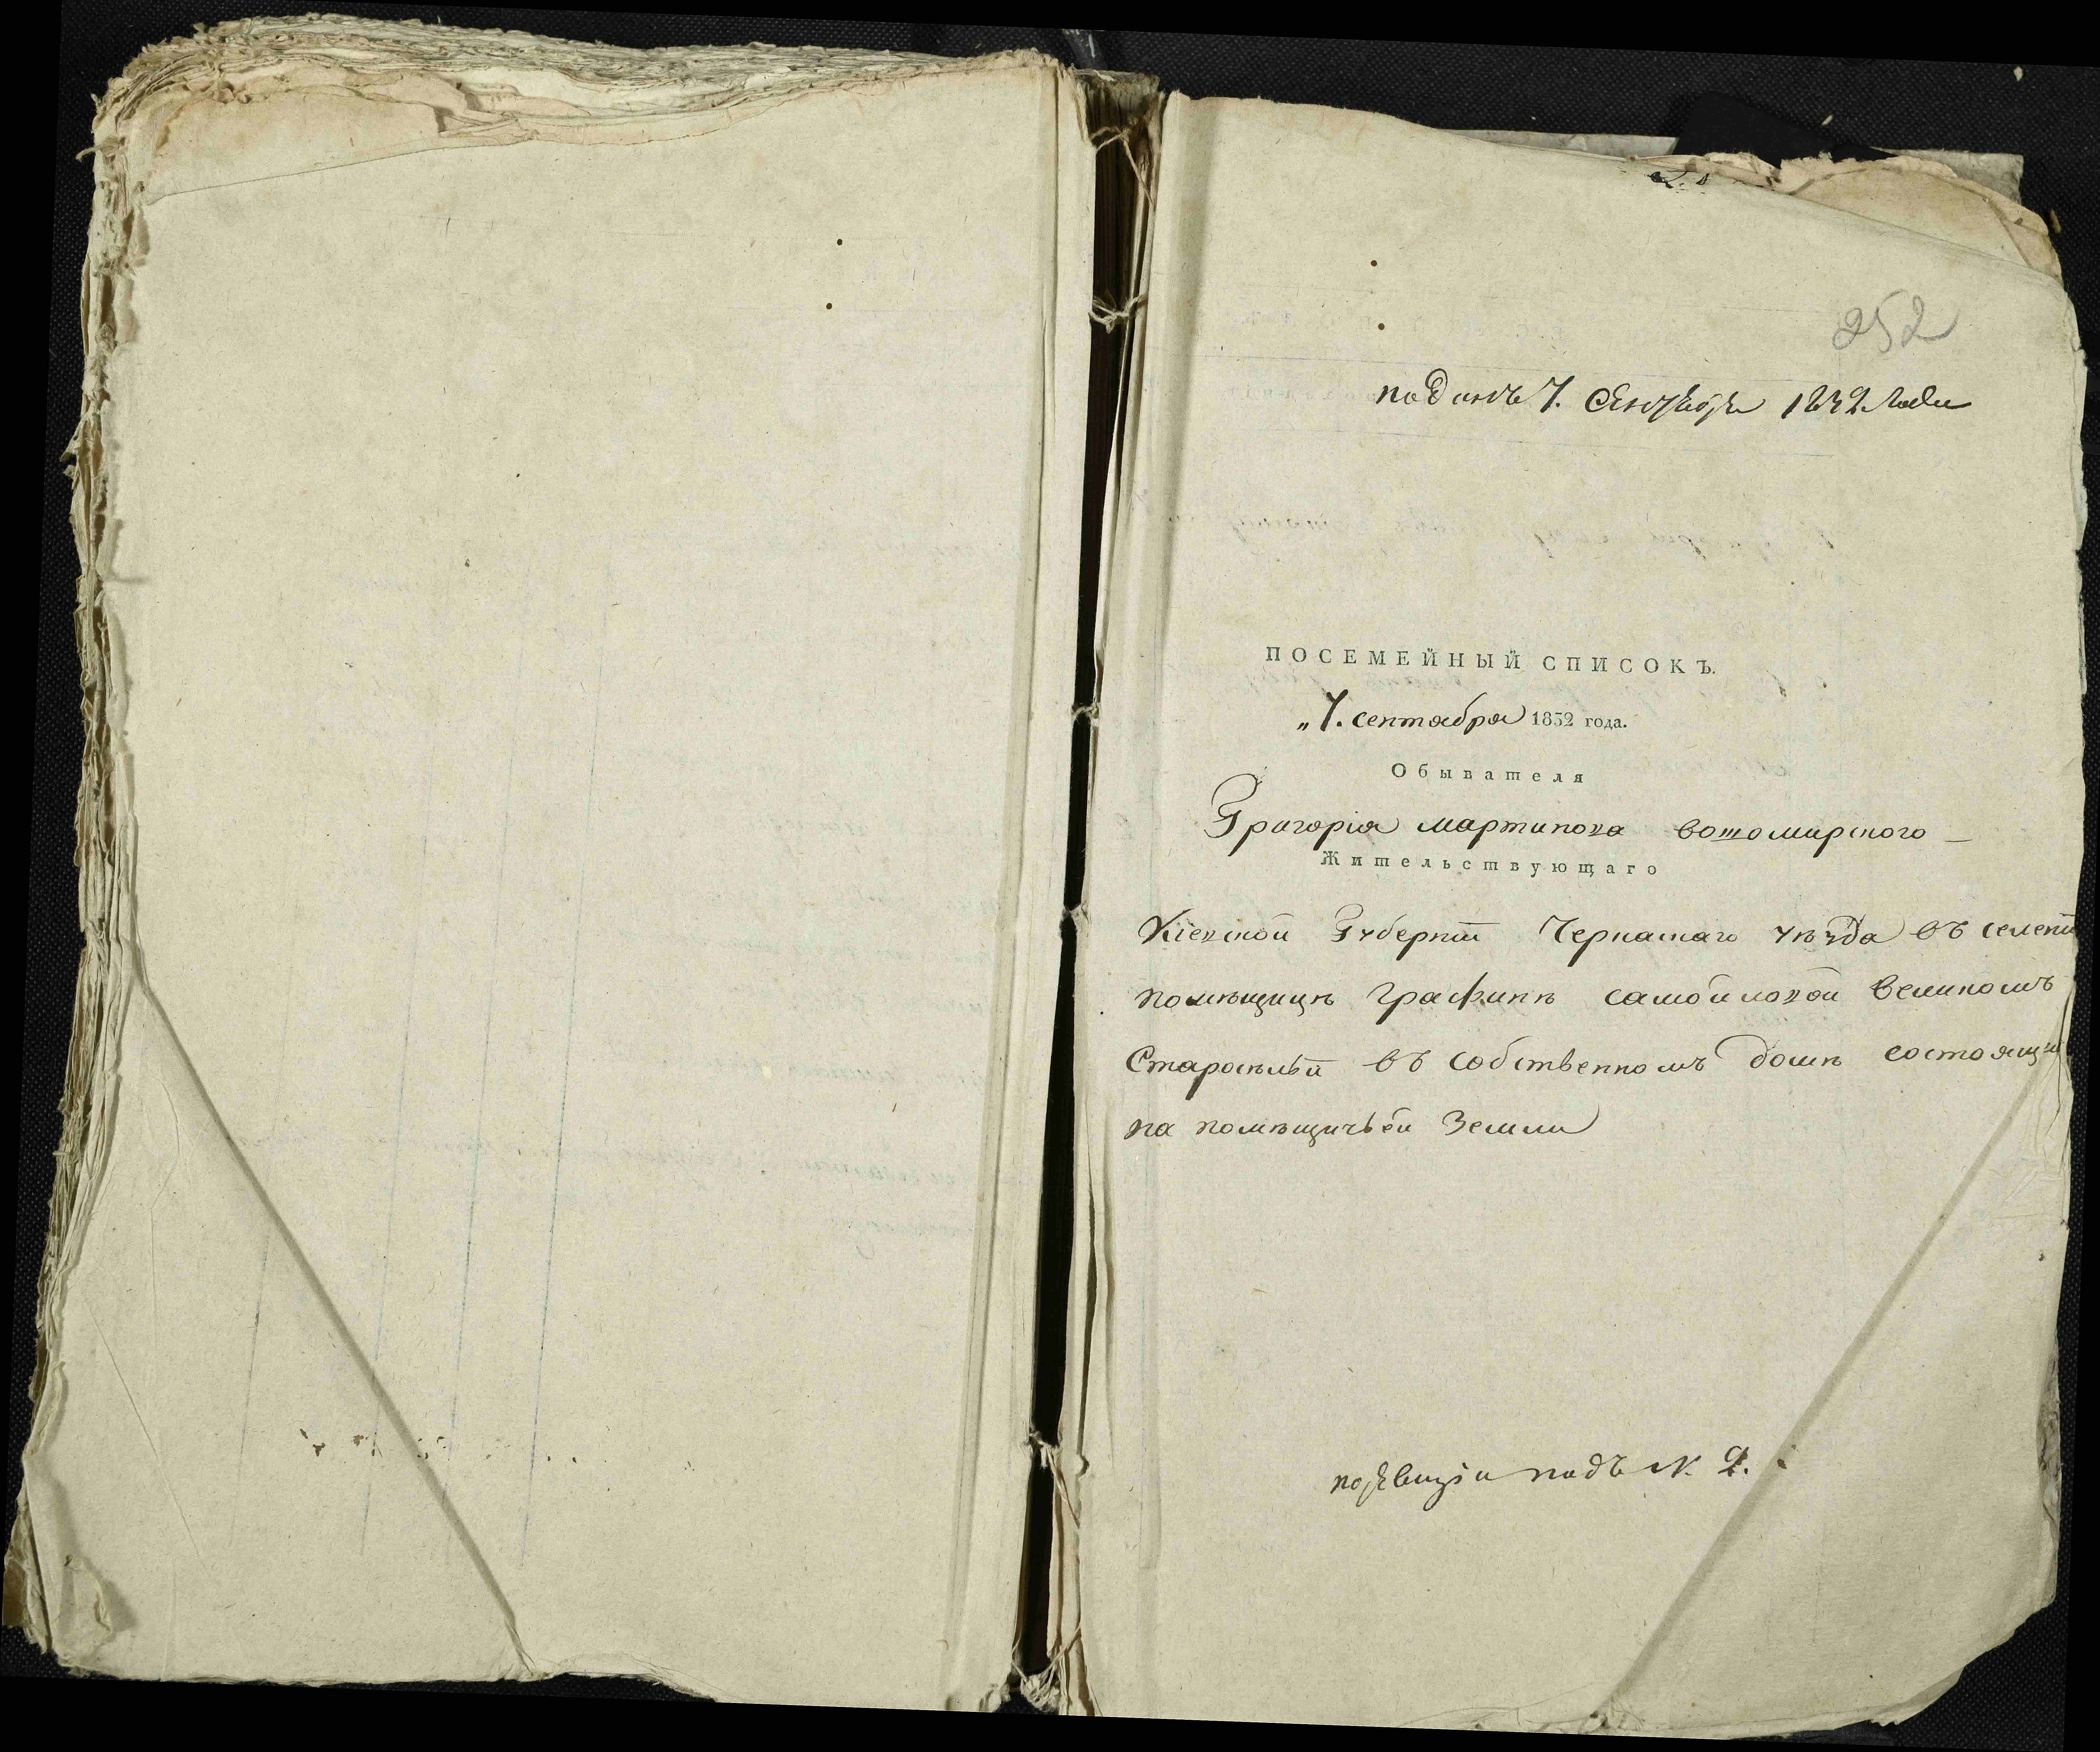 252
поданъ 7. Сентября 1832 года
ПОСЕМЕЙНЫЙ СПИСОКЪ.
„7. сентября 1832 года.
Обывателя
Григорія мартинова вотомирского
Жительствующаго
Кіевской Губерніи Черкаскаго уѣзда въ селеніи
помѣщицѣ графинѣ самойловой великомъ
Старосѣльи въ собственномъ домѣ состоящи
на помѣщичьей земли
поревизіи подъ N. 2.